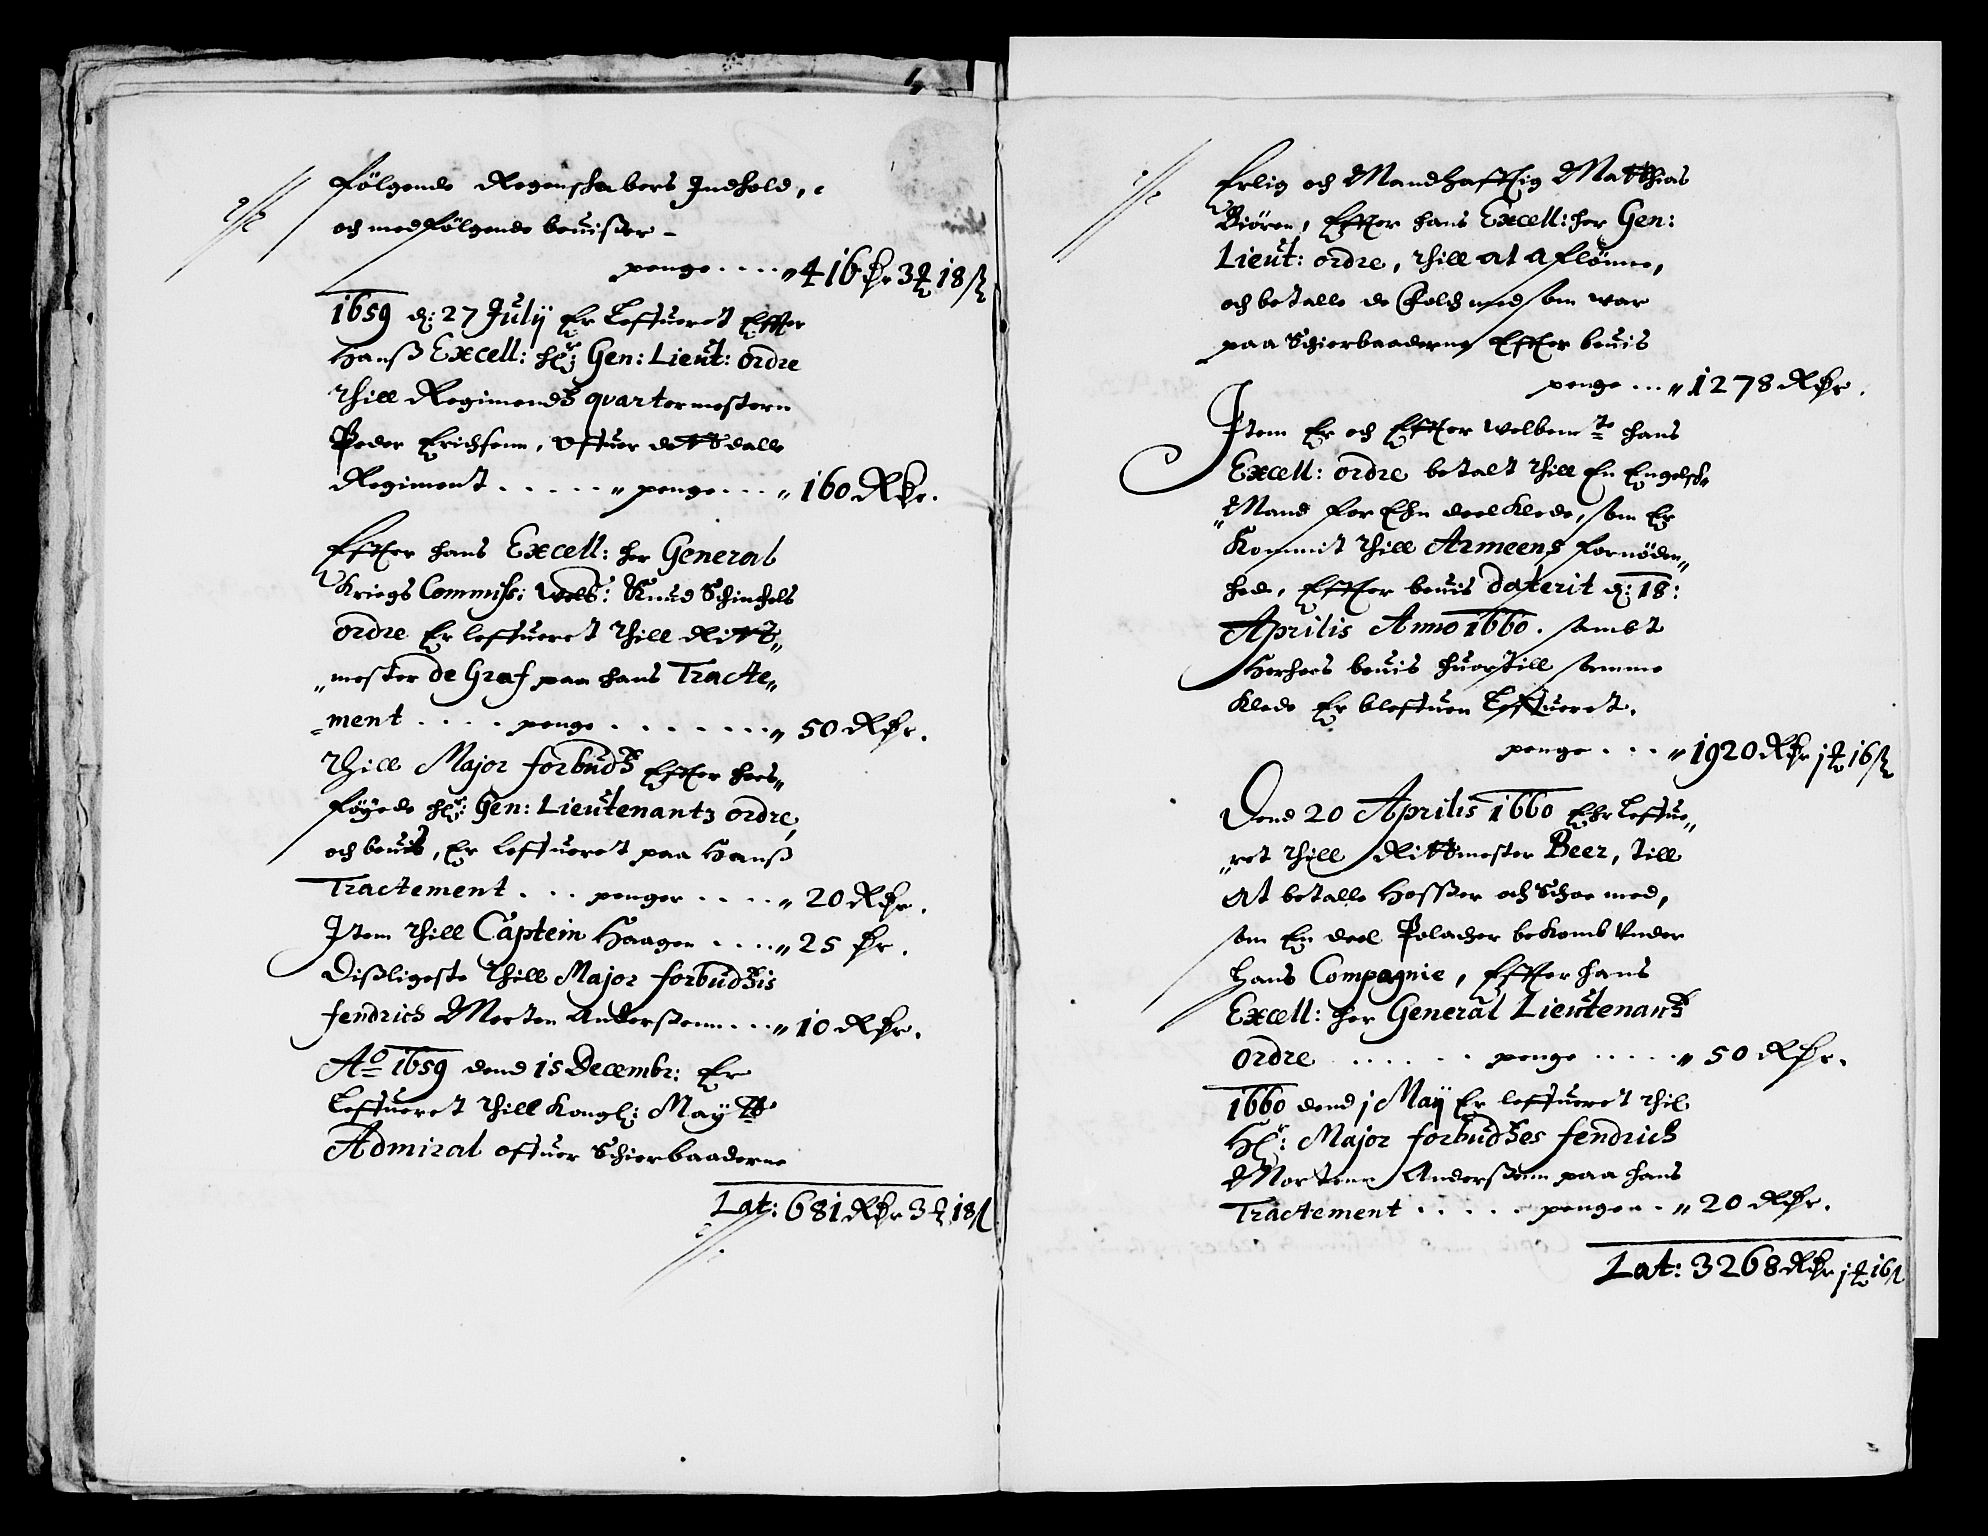 følgende Regenskabers Indhold,
och medfølgende beuißer –
penge .... 416 Rdr 3 ℔ 18 ß
1659 d: 27 Julÿ Er Lefueret Effter
Hanß Excell: hr: Gen: Lieut: ordre
thill Regimendz quartermestern
Peder Erichsenn, Ofuer dettDalls
Regiment ..... penge ... 160 Rdr.
Effter hans Excell: her General
Kriegs Commiss: Welb: Knud Schinchels
ordre Er lefueret thill Ritt„
„mester de Graf paa hans Tracte„
„ment .... penge ....... 50 Rdr.
Thill Major forbudz Effter høs„
føÿede hr: Gen: Lieutenantz ordre,
och beuis, Er lefueret paa Hanß
Tractement ... penger .... 20 Rdr.
Item thill Captein Haagen .... 25 Rdr.
Dißligeste thill Major forbudzis
fendrich Morten Anderssenn ... 10 Rdr.
Ao 1659 dend 15 Decembr: Er
Lefueret thill Kongl: Maÿtts
Admiral ofuer Schierbaaderne
Lat: 681 Rdr 3 ℔ 18 ß
Erlig och Mandhafftig Matthias
Biøren, Effter hans Excell: her Gen:
Lieut: ordre, thill at aflønne,
och betalle de Folch med som war
paa Schierbaaderne Effter beuis
penge ... 1278 Rdr.
Item Er och Effter welbemte hans
Excell: ordre betalt thill En Engelsch
„Mand for Ehn deel Klede, som Er
Kommit thill Armeens fornøden„
hed, Effter beuis daterit d: 18:
Aprilis Anno 1660. sambt
Herhees beuis huortill samme
Klede Er blefuen Lefueret.
penge ... 1920 Rdr j ℔ 16 ß
Dend 20 Aprilis 1660 Ehr Lefue„
„ret thill Rittmester Beer, till
At betalle Hosser och Schoe med,
som En deel Polacher bekomb Under
hans Compagnie, Effter hans
Excell: her General Lieutenantz
ordre ...... penge ..... 50 Rdr.
1660 dend j Maÿ Er lefueret thil
Hr: Major forbudzes fendrich
Mortenn Anderssenn paa hans
Tractement ..... penge .. 20 Rdr.
Lat: 3268 Rdr j ℔ 16 ß